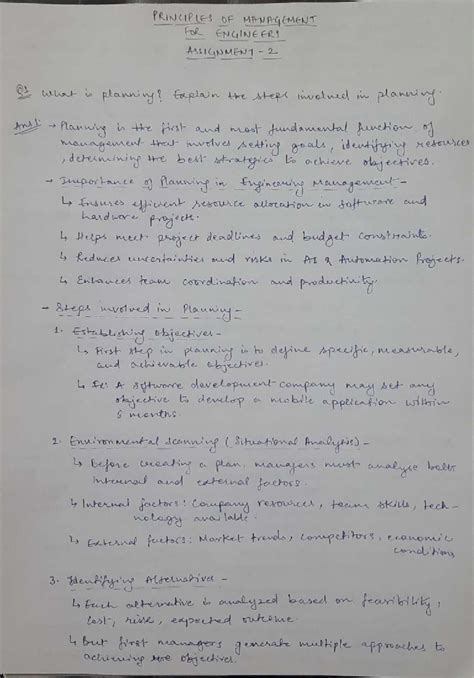 PRINCIPLES OF MANAGEMENT
FOR ENGINEERS
ASSIGNMENT - 2
Q1 What is planning? Explain the steps involved in planning.
Ans1: → Planning is the first and most fundamental function of
management that involves setting goals, identifying resources
, determining the best strategies to achieve objectives.
→ Importance of Planning in Engineering Management -
↳ Ensures efficient resource allocation in software and
hardware projects.
↳ Helps meet project deadlines and budget constraints.
↳ Reduces uncertainties and risks in AI & Automation Projects.
↳ Enhances team coordination and productivity.
- Steps involved in Planning -
1. Establishing Objectives -
↳ First step in planning is to define specific, measurable,
and achievable objectives.
↳ Ex: A software development company may set any
objective to develop a mobile application within
6 months.
2. Environmental Scanning (Situational Analysis) -
↳ Before creating a plan, managers must analyse both
internal and external factors.
↳ Internal factors: Company resources, team skills, tech-
nology available.
↳ External factors: Market trends, competitors, economic
conditions
3. Identifying Alternatives -
↳ Each alternative is analyzed based on feasibility,
cost, risk, expected outcome.
↳ But first managers generate multiple approaches to
achieving the objectives.